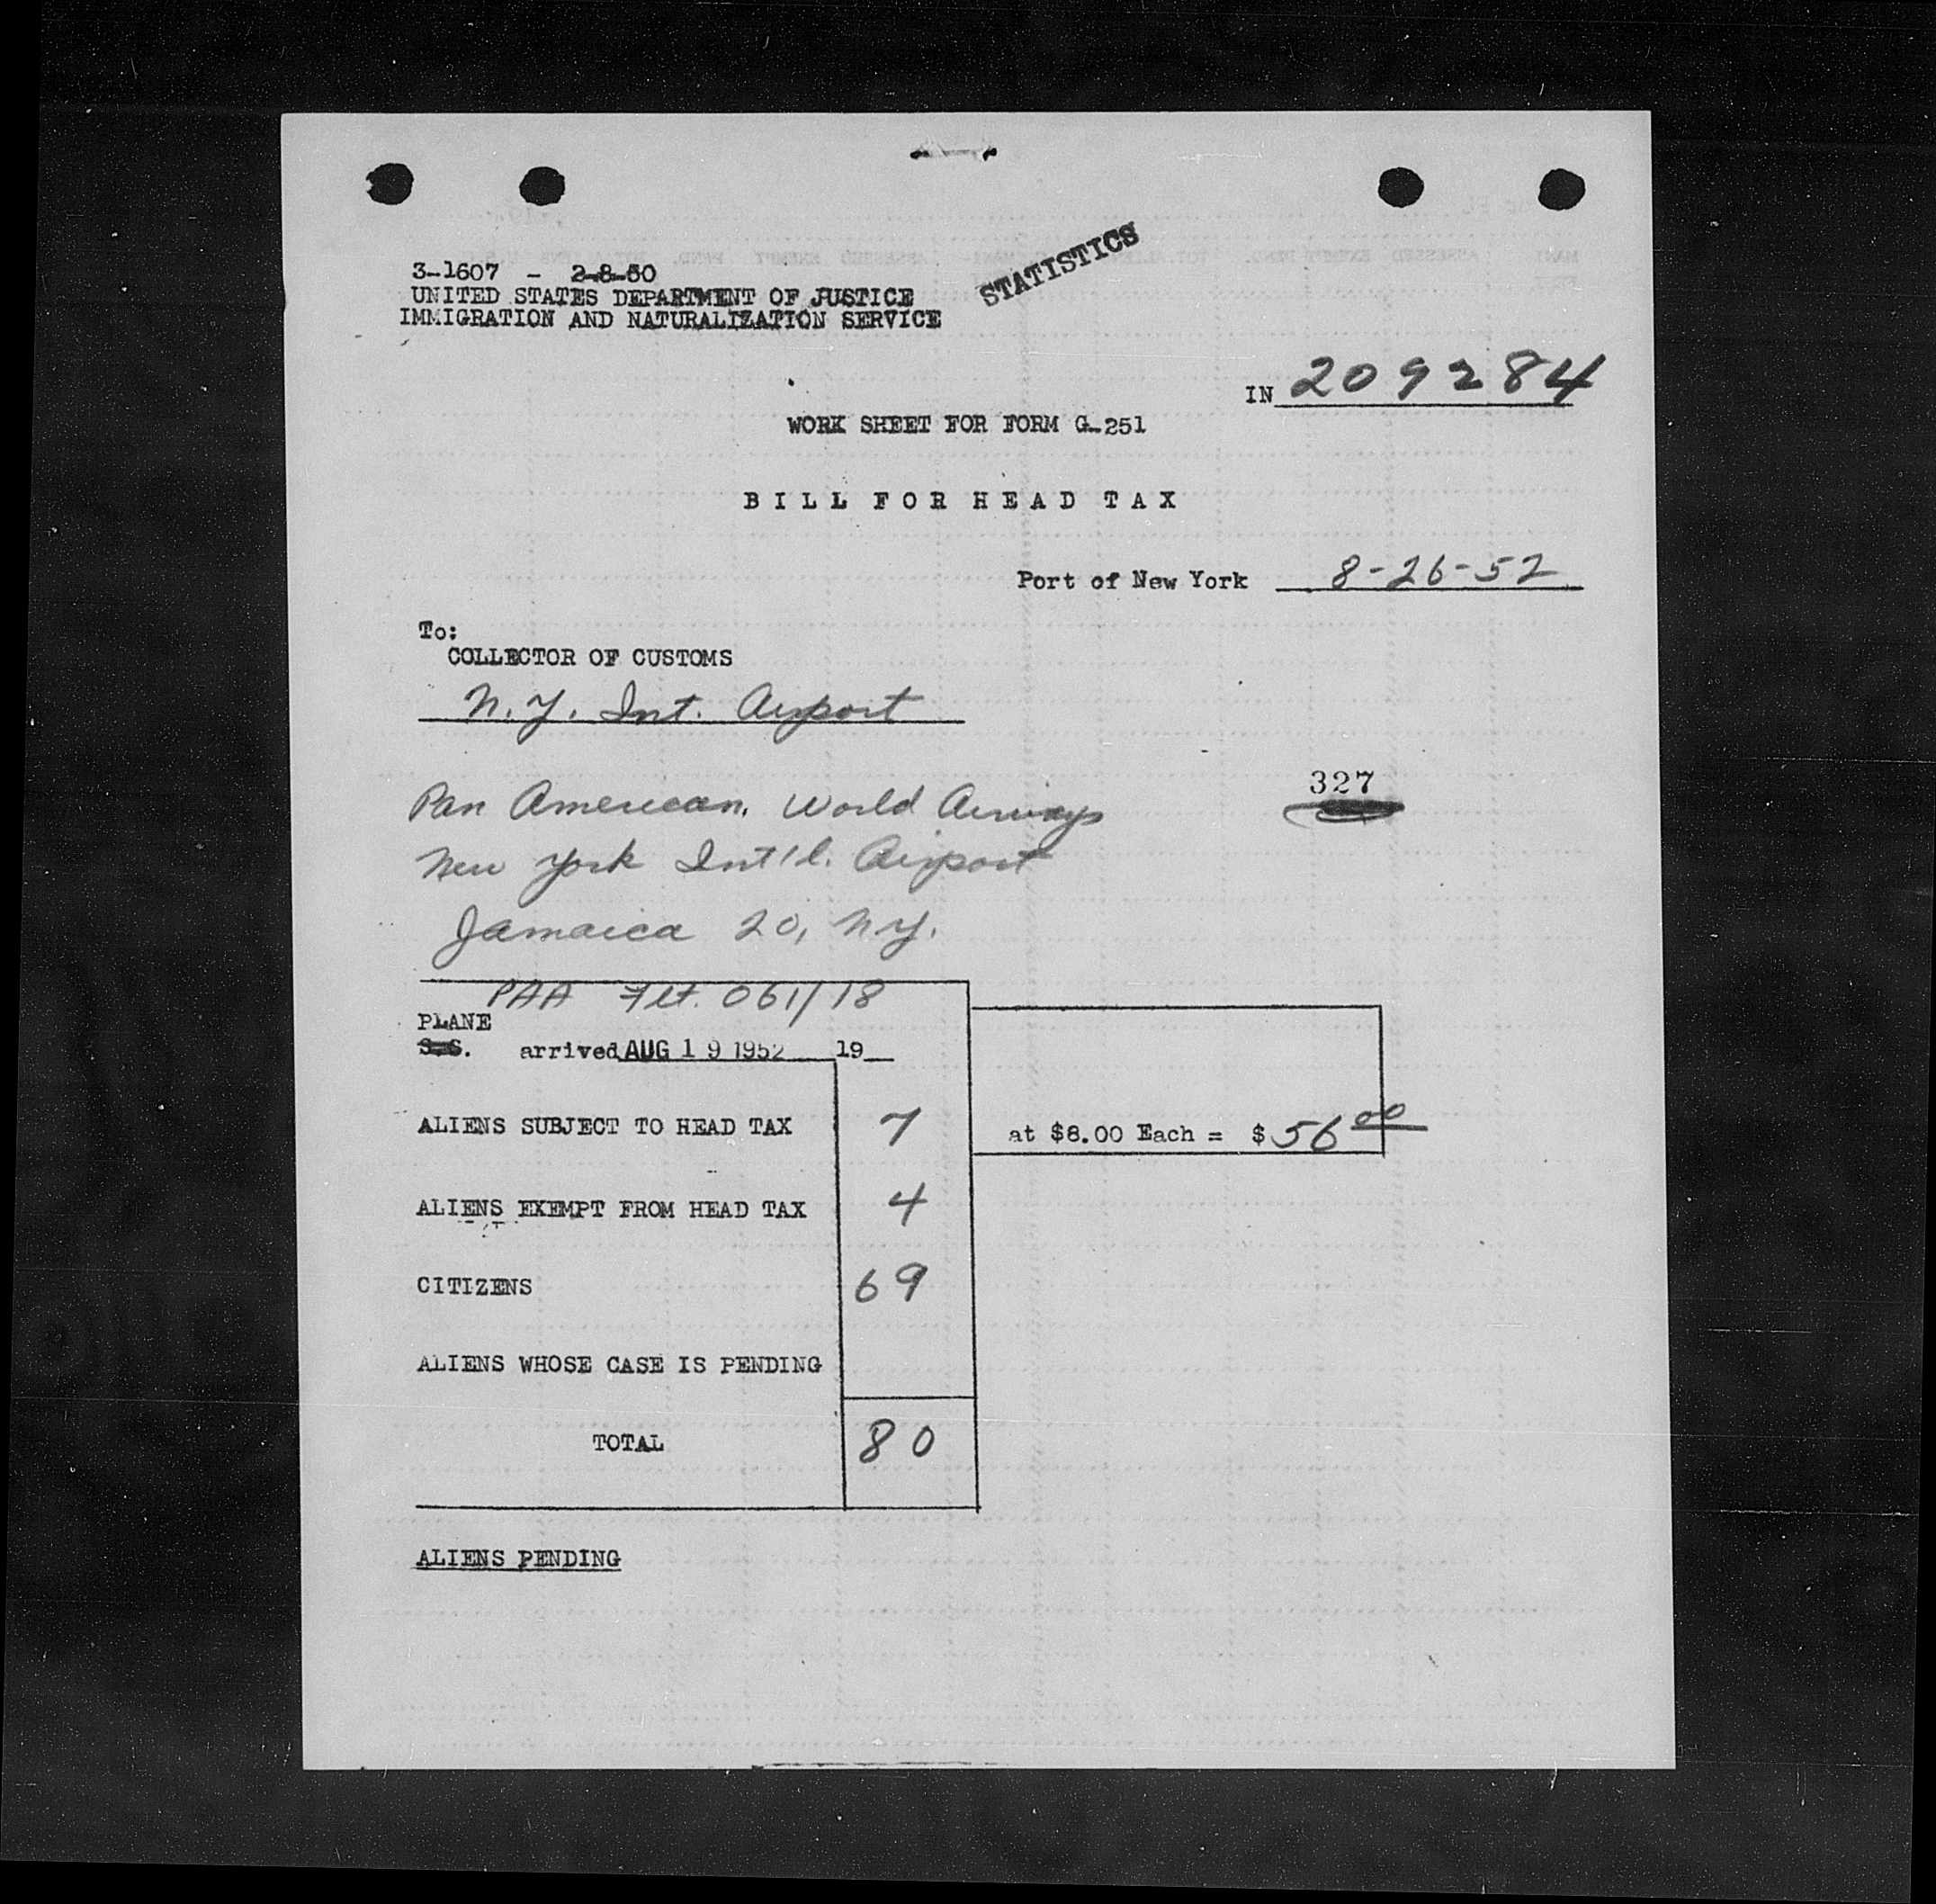 STATISTICS
3-1607 - 2-8-50
UNITED STATES DEPARTMENT OF JUSTICE
IMMIGRATION AND NATURALIZATION SERVICE
IN 209284
WORK SHEET FOR FORM G-251
BILL FOR HEAD TAX
Port of New York 8-26-52
To:
COLLECTOR OF CUSTOMS
N.Y. Int. Airport
327
Pan American World Airways
New York Int'l. Airport
Jamaica 20, N.Y.
PAA Flt. 061/18
PLANE
S.S. arrived AUG 19 1952 19
ALIENS SUBJECT TO HEAD TAX 7 at $8.00 Each = $56 00
ALIENS EXEMPT FROM HEAD TAX 4
CITIZENS 69
ALIENS WHOSE CASE IS PENDING
TOTAL 80
ALIENS PENDING